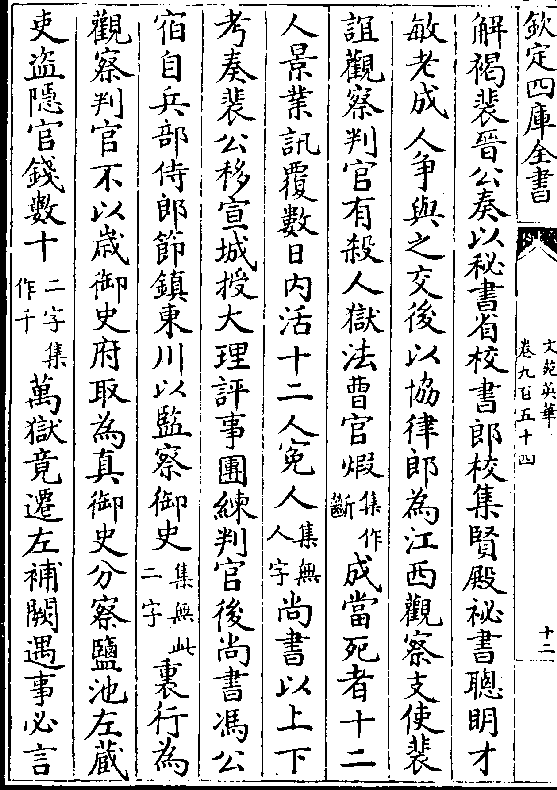 欽定四庫全書
文苑英華
卷九百五十四
十二
解褐裴晉公奏以秘書省校書郎校集賢殿祕書聰明才
敏老成人爭與之交後以協律郎為江西觀察支使裴
誼觀察判官有殺人獄法曹官煆集作斷成當死者十二
人景業訊覆數日内活十二人寃人集無人字尚書以上下
考奏裴公移宣城授大理評事團練判官後尚書馮公
宿自兵部侍郎節鎮東川以監察御史集無此二字裏行為
觀察判官不以歳御史府取為真御史分察鹽池左藏
吏盜隱官錢數十二字集作千萬獄竟遷左補闕遇事必言